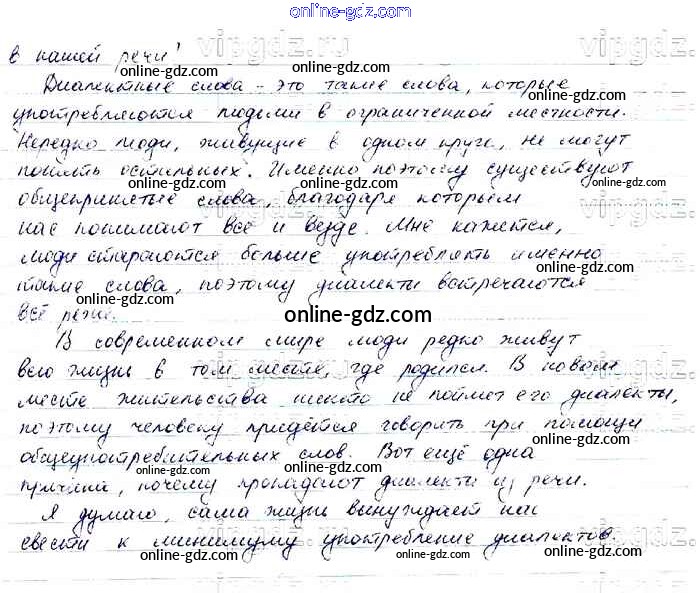 online-gdz.com
в нашей речи?
Диалектные слова - это такие слова, которые
употребляются людьми в ограниченной местности.
Нередко люди, живущие в одном круге, не могут
понять остальных. Именно поэтому существуют
общепринятые слова, благодаря которым
нас понимают всё и везде. Мне кажется,
люди стараются больше употреблять именно
такие слова, поэтому диалекты встречаются
всё реже.
В современном мире люди редко живут
всю жизнь в том месте, где родился. В новом
месте жительства никто не поймет его диалекты,
поэтому человеку придётся говорить при помощи
общеупотребительных слов. Вот ещё одна
причина, почему пропадают диалекты из речи.
Я думаю, сама жизнь вынуждает нас
свести к минимуму употребление диалектов.